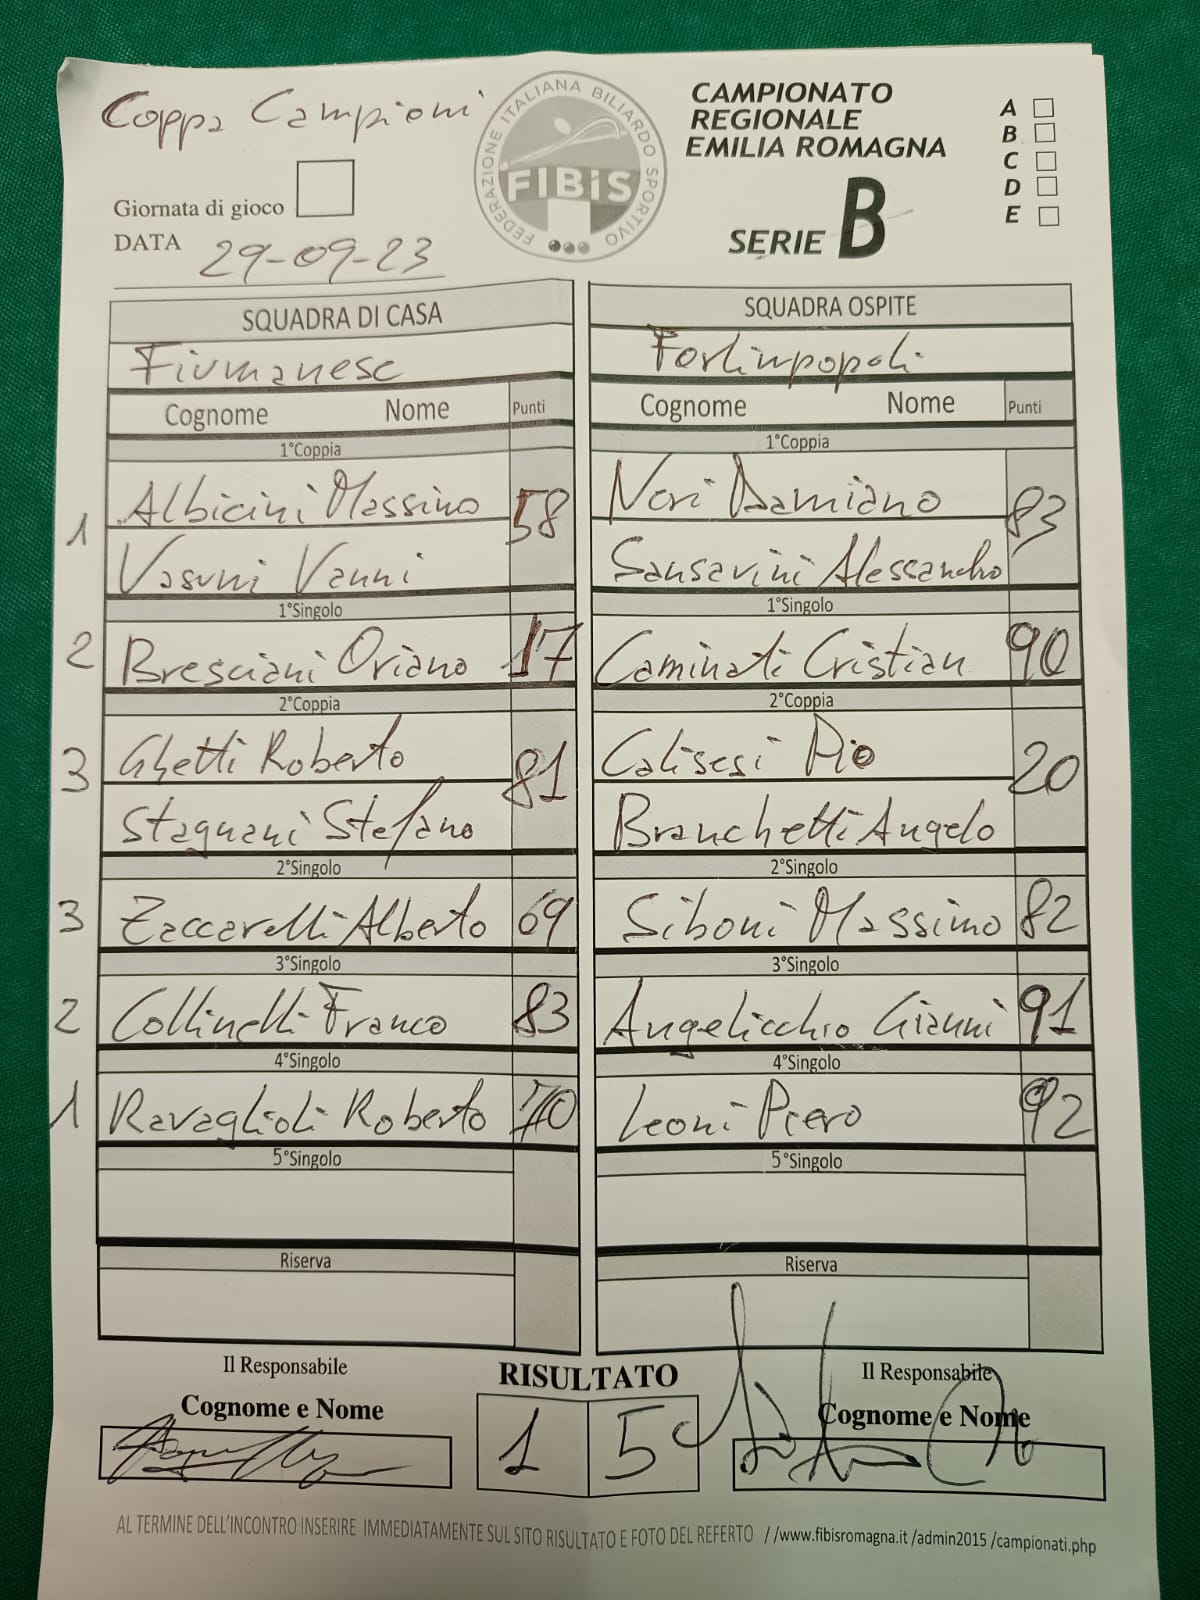 Coppa Campioni
FEDERAZIONE ITALIANA BILIARDO SPORTIVO
FIBiS
CAMPIONATO
REGIONALE
EMILIA ROMAGNA
SERIE B
A
B
C
D
E
Giornata di gioco
DATA 29-09-23
SQUADRA DI CASA SQUADRA OSPITE
Fiumanese Forlimpopoli
Cognome Nome Punti Cognome Nome Punti
1°Coppia 1°Coppia
1 Albicini Massimo 58 Neri Damiano 83
Vasumi Vanni Sansavini Alessandro
1°Singolo 1°Singolo
2 Bresciani Oriano 17 Caminati Cristian 90
2°Coppia 2°Coppia
3 Ghetti Roberto 81 Calisesi Pio 20
Stagnani Stefano Branchetti Angelo
2°Singolo 2°Singolo
3 Zaccarelli Alberto 69 Siboni Massimo 82
3°Singolo 3°Singolo
2 Collinelli Franco 83 Angelicchio Gianni 91
4°Singolo 4°Singolo
1 Ravaglioli Roberto 70 Leoni Piero 92
5°Singolo 5°Singolo
Riserva Riserva
Il Responsabile RISULTATO Il Responsabile
Cognome e Nome 1 5 Cognome e Nome
AL TERMINE DELL'INCONTRO INSERIRE IMMEDIATAMENTE SUL SITO RISULTATO E FOTO DEL REFERTO //www.fibisromagna.it /admin2015 /campionati.php